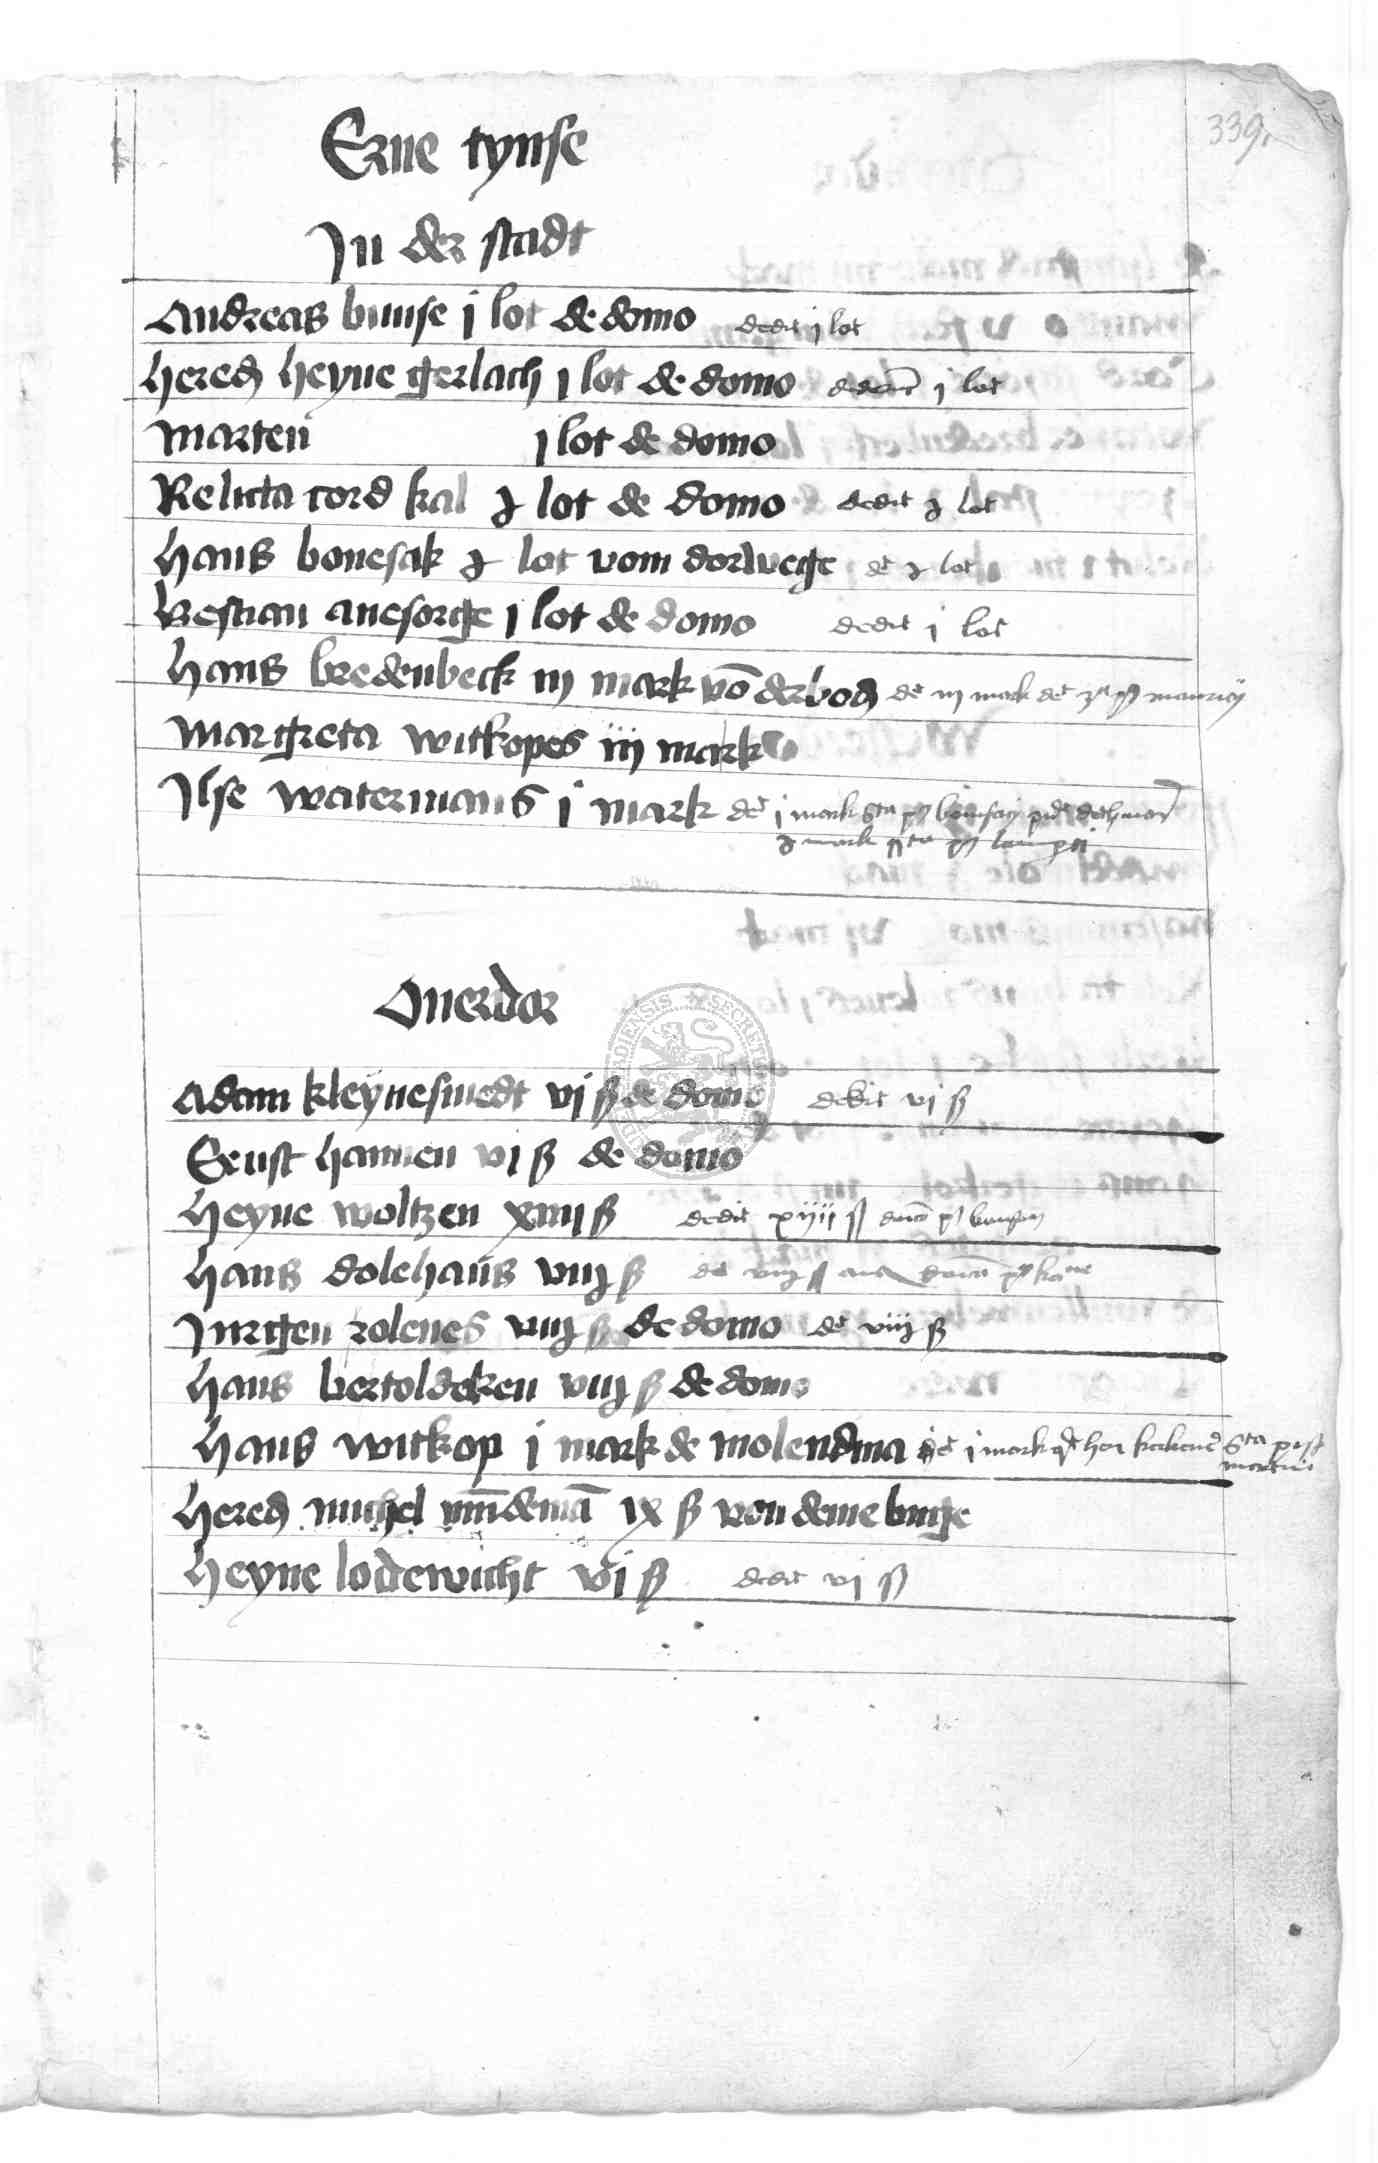 339.
Erue tynse
In der stadt
Andreas bunse j lot de domo dedit j lot
Hered heyne gerlach j lot de domo dederunt j lot
Marten j lot de domo
Relicta cord kal lot de domo dedit lot
Hans bonesak lot vom dorwege det lot
Bestian anesorge j lot de domo dedit j lot
Hans bredenbeck iij mark vō der bod det iij mark det mauricij
Margreta witkopes iij mark
Ilse watermans j mark det j mark bonifacij
mark
Ouerdor
Adam kleynesmedt vj ß de domo dedit vj ß
Ernst hannen vj ß de domo
Heyne woltzen xiiij ß dedit xiiij ß
Hans dolehans viij ß det viij ß
Jurgen rolenes viij ß de domo det viij ß
Hans bertoldeken viij ß de domo
Hans witkop j mark de molendina det j mark her post
martini
Hered michel ix ß von deme
Heyne lodewicht vj ß dedit vj ß